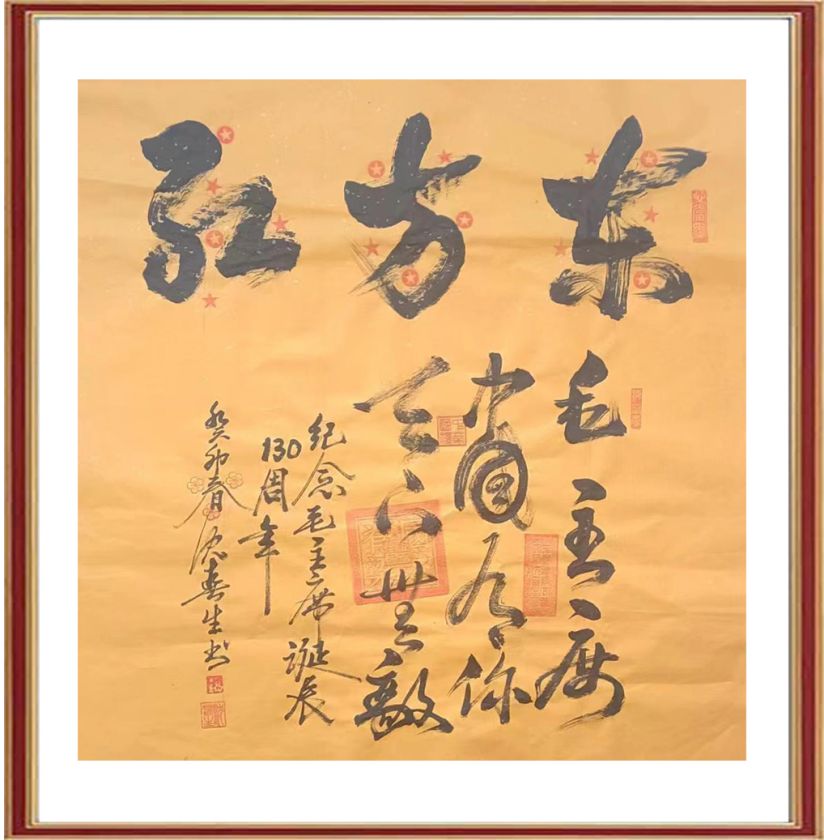 东方红
毛主席
中国有你
天下無敵
纪念毛主席诞辰
130周年
癸卯春 生书